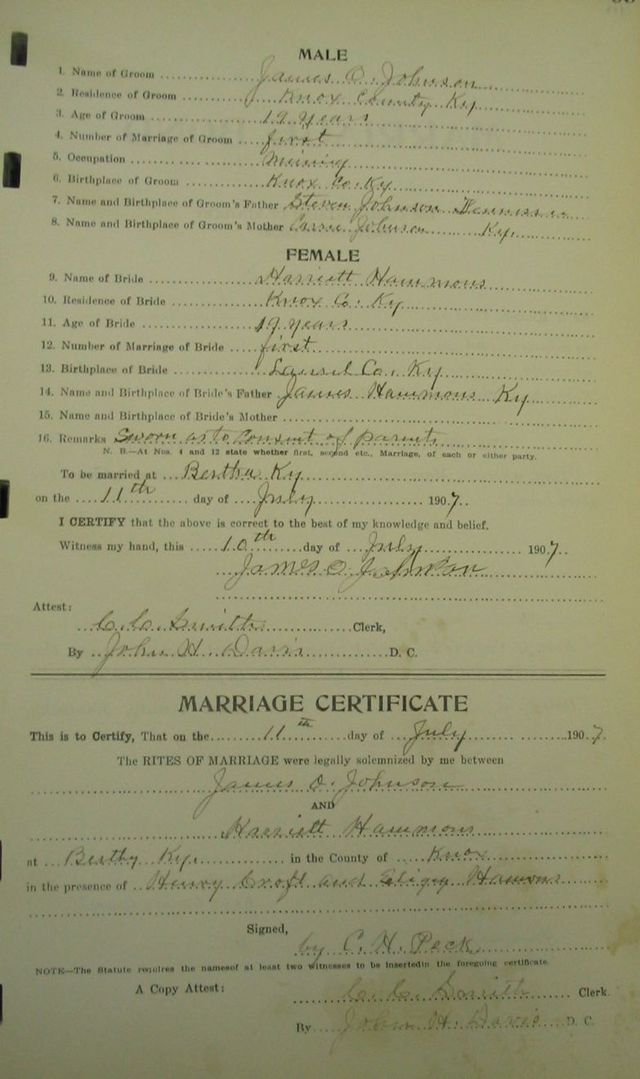 MALE
1. Name of Groom James O. Johnson
2. Residence of Groom Knox County Ky
3. Age of Groom 19 years
4. Number of Marriage of Groom first
5. Occupation Mining
6. Birthplace of Groom Knox Co. Ky
7. Name and Birthplace of Groom's Father Steven Johnson
8. Name and Birthplace of Groom's Mother Johnson Ky.
FEMALE
9. Name of Bride Harriett Hammons
10. Residence of Bride Knox Co. Ky
11. Age of Bride 19 years
12. Number of Marriage of Bride first
13. Birthplace of Bride Laurel Co. Ky
14. Name and Birthplace of Bride's Father James Hammons Ky
15. Name and Birthplace of Bride's Mother
16. Remarks Sworn as to Consent of parents
N. B.—At Nos. 4 and 12 state whether first, second etc., Marriage, of each or either party.
To be married at Bertha Ky
on the 11th day of July 1907
I CERTIFY that the above is correct to the best of my knowledge and belief.
Witness my hand, this 10th day of July 1907.
James O Johnson
Attest:
C. C. Smith Clerk,
By John H. Davis D. C.
MARRIAGE CERTIFICATE
This is to Certify, That on the 11th day of July 1907.
The RITES OF MARRIAGE were legally solemnized by me between
James O. Johnson
AND
Harriett Hammons
at Ky. in the County of Knox
in the presence of Henry Croft and
Signed,
by C. H. Peck
NOTE—The Statute requires the namesof at least two witnesses to be insertedin the foregoing certificate.
A Copy Attest: C. C. Smith Clerk.
By John H. Davis D. C.